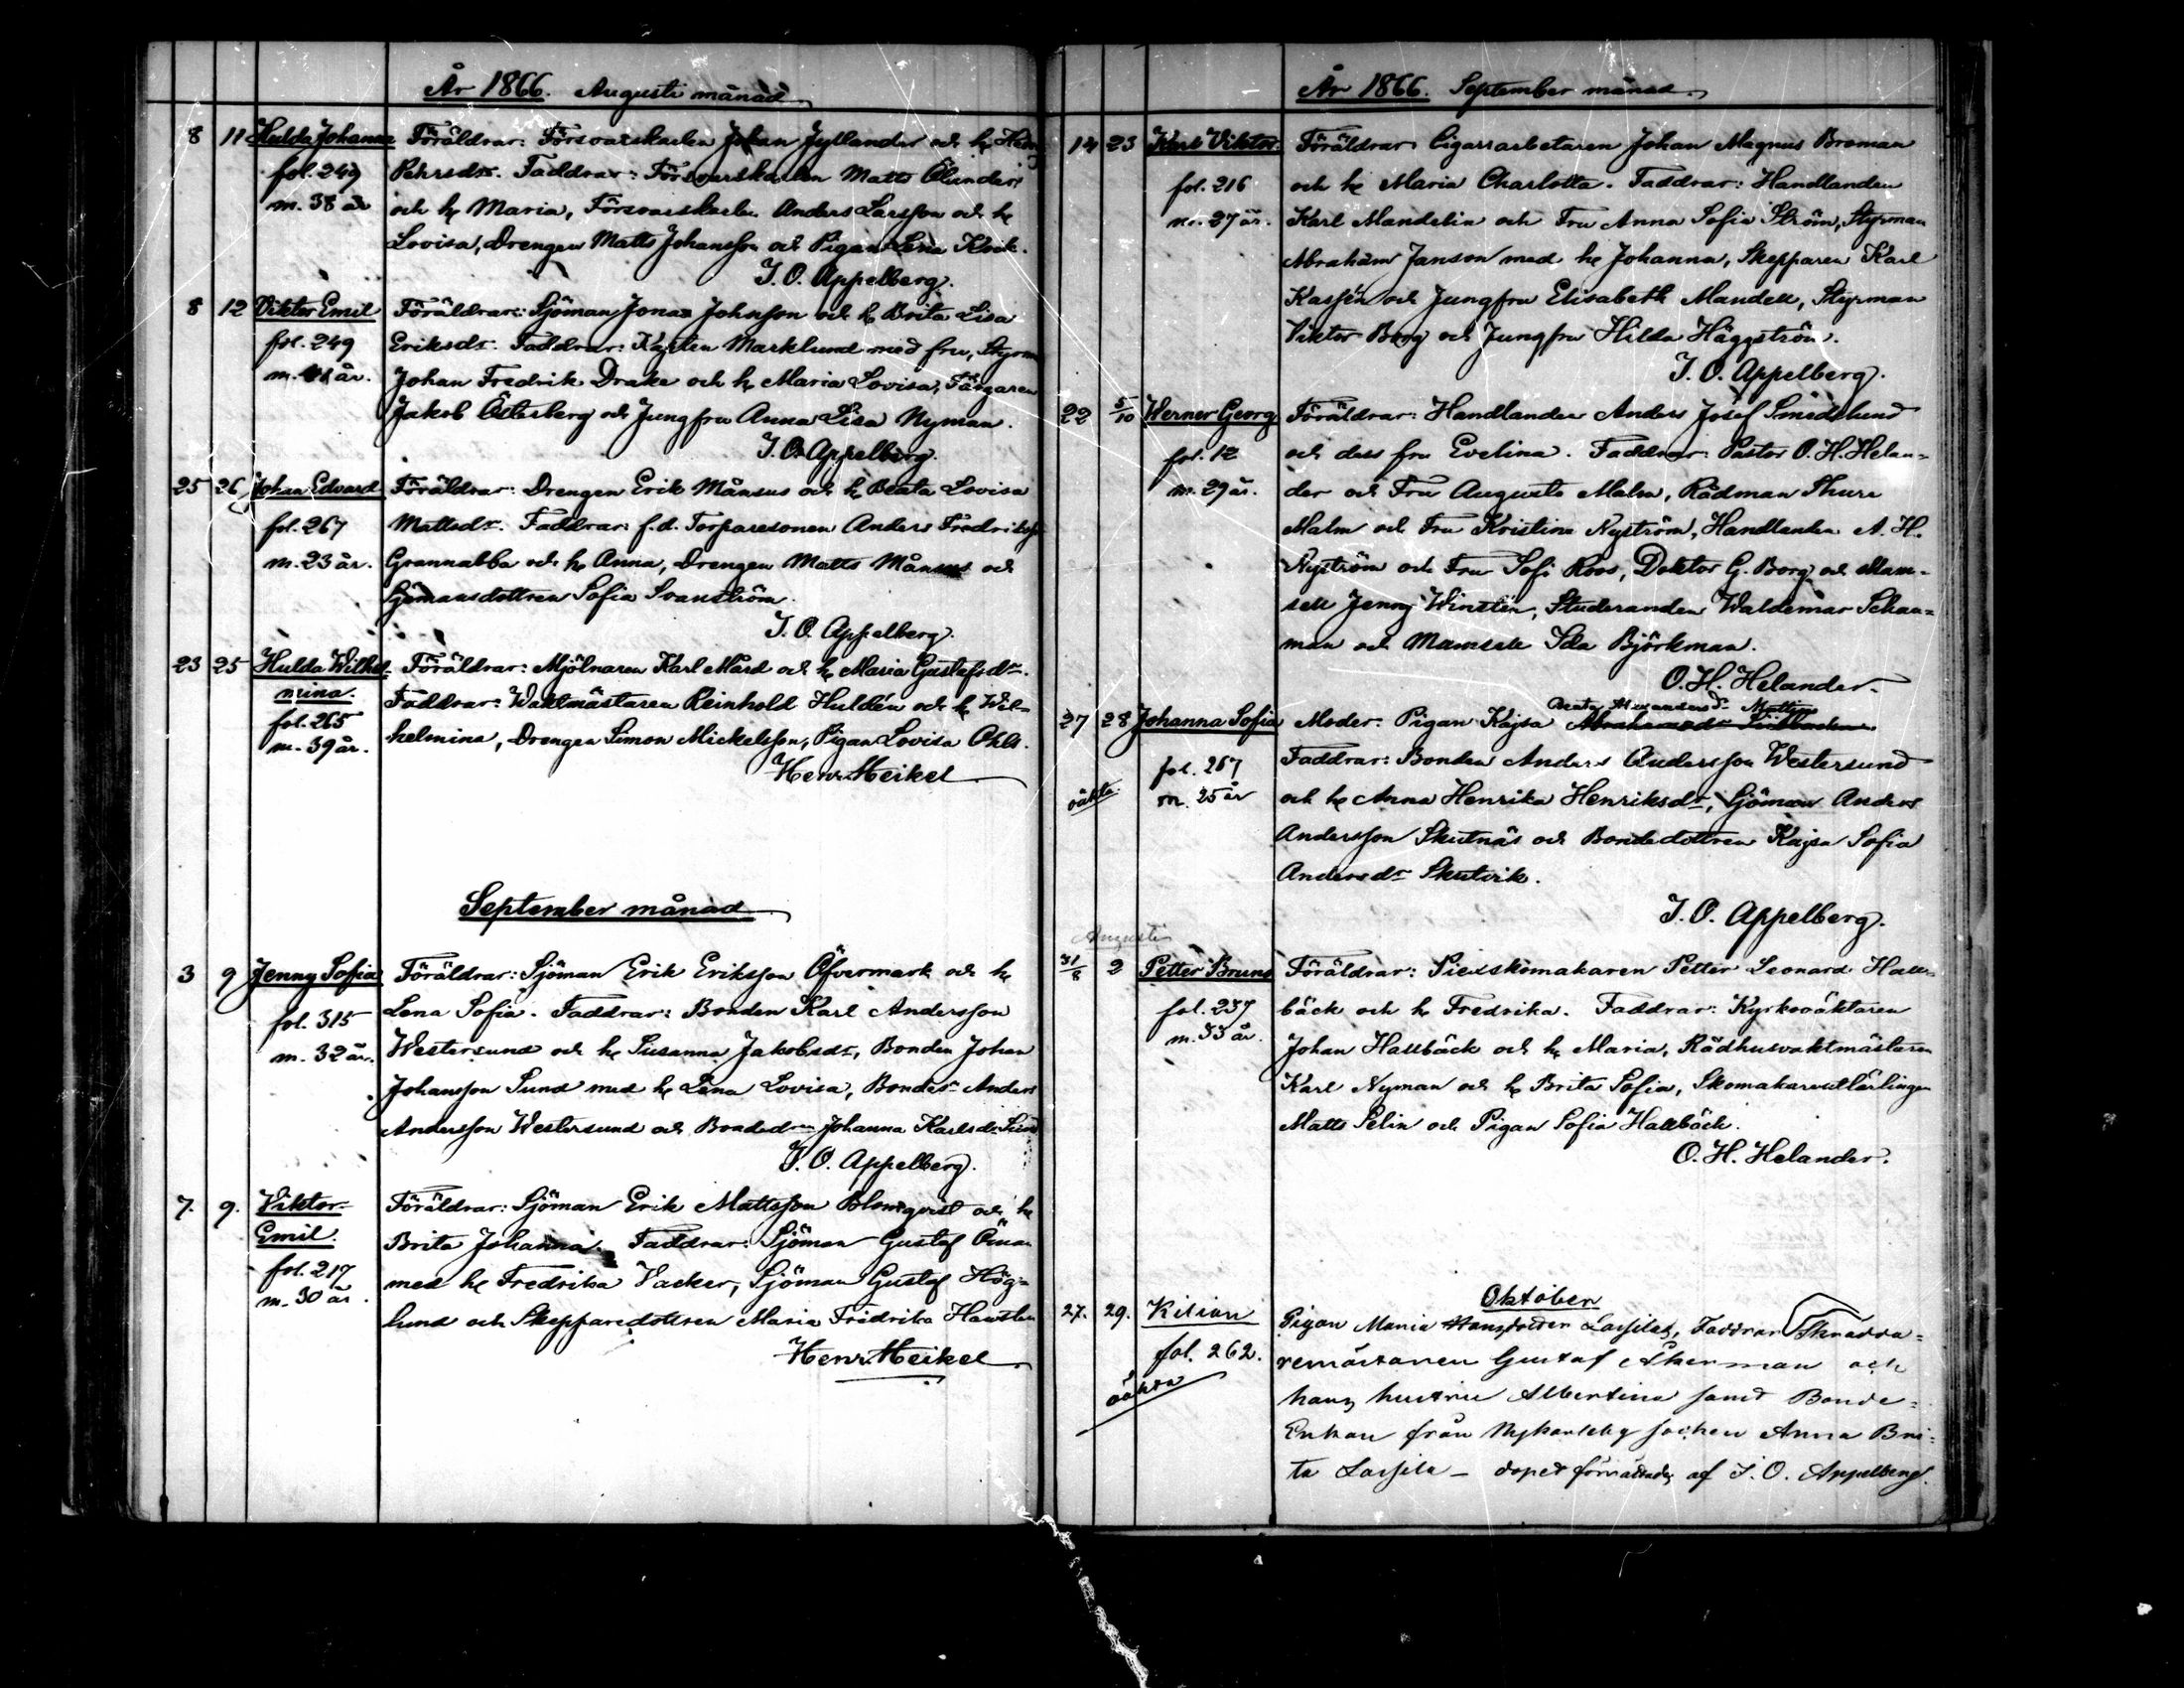 År 1866. Augusti månad
8 11 Hulda Johanna Föräldrar: Försvarskarlen Johan Jyllander och h.
fol. 249 Pehrsdr. Faddrar: Försvarskarlen Matts Ölander
m. 38 år och h. Maria, Försvarskarlen Anders Larsson och h.
Lovisa, Drengen Matts Johansson och Pigan Lena Kock.
J. O. Appelberg.
8 12 Viktor Emil Föräldrar: Sjöman Jonas Johnson och h. Brita Lisa
fol. 249 Eriksdr. Faddrar: Kapten Marklund med fru, Styrm
m. år. Johan Fredrik Drake och h. Maria Lovisa, Färgaren
Jakob Österberg och Jungfru Anna Lisa Nyman.
J. O. Appelberg.
25 26 Johan Edvard Föräldrar: Drengen Erik Månsus och h. Beata Lovisa
fol. 267 Mattsdr. Faddrar: f.d. Torparesonen Anders Fredriksson
m. 23 år. Grannabba och h. Anna, Drengen Matts Månsus och
Sjömansdottren Sofia Svanström.
J. O. Appelberg.
23 25 Hulda Wilhel- Föräldrar: Mjölnaren Karl Mård och h. Maria Gustafsdr.
mina. Faddrar: Waktmästaren Reinhold Huldén och h. Wil-
fol. 265 helmina, Drengen Simon Mickelsson, Pigan Lovisa Ohls.
m. 39 år.
Henr. Heikel
September månad
3 9 Jenny Sofia Föräldrar: Sjöman Erik Eriksson Öfvermark och h.
fol. 315 Lena Sofia. Faddrar: Bonden Karl Andersson
m. 32 år. Westersund och h. Susanna Jakobsdr, Bonden Johan
Johansson Sund med h. Lena Lovisa, Bondes. Anders
Andersson Westersund och Bondedr Johanna Karlsdr Sund
J. O. Appelberg.
7. 9. Viktor Föräldrar: Sjöman Erik Mattsson Blomqvist och h.
Emil. Brita Johanna. Faddrar: Sjöman Gustaf Öman
fol. 217 med h. Fredrika Vacker, Sjöman Gustaf Hög-
m. 30 år. lund och Skepparedottren Maria Fredrika
Henr. Heikel
År 1866. September månad
14 23 Karl Viktor. Föräldrar Cigarrarbetaren Johan Magnus Broman
fol. 216 och h. Maria Charlotta. Faddrar: Handlanden
m. 27 år. Karl Mandelin och Fru Anna Sofia Ström, Styrman
Abraham Janson med h. Johanna, Skepparen Karl
Kassén och Jungfru Elisabeth Mandell, Styrman
Viktor Borg och Jungfru Hilda Häggström.
J. O. Appelberg.
22 5/10 Werner Georg Föräldrar: Handlanden Anders Josef Smedslund
fol. 12 och dess fru Evelina. Faddrar: Pastor O. H. Helan-
m. 29 år. der och Fru Augusta Malm, Rådman Thure
Malm och Fru Kristina Nyström, Handlanden A. H.
Nyström och Fru Sofi Roos, Doktor G. Borg och Mam-
sell Jenny Winstén, Studeranden Waldemar Schau-
man och Mamsell Ida Björkman.
O. H. Helander.
27 28 Johanna Sofia Moder: Pigan Kajsa
fol. 267 Faddrar: Bonden Anders Andersson Westersund
oäkta. m. 25 år och h. Anna Henrika Henriksdr, Sjöman Anders
Andersson Skutnäs och Bondedottren Kajsa Sofia
Andersdr Skutvik.
J. O. Appelberg.
Augusti
31/8 2 Petter Bruno Föräldrar: Pickskomakaren Petter Leonard Hall-
fol. 237 bäck och h. Fredrika. Faddrar: Kyrkováktaren
m. 33 år. Johan Hallbäck och h. Maria, Rådhusvaktmästaren
Karl Nyman och h. Brita Sofia, Skomakareutlärlingen
Matts Selin och Pigan Sofia Hallbäck.
O. H. Helander.
Oktober
27. 29. Kilian Pigan Maria Lassilas, Faddrar Skradda-
fol. 262. remästaren Gustaf Åkerman och
oäkta hans hustru Albertina samt Bonde-
Enkan från Nykarleby socken Anna Bri-
ta Lassila - dopet förrättades af J. O. Appelberg.